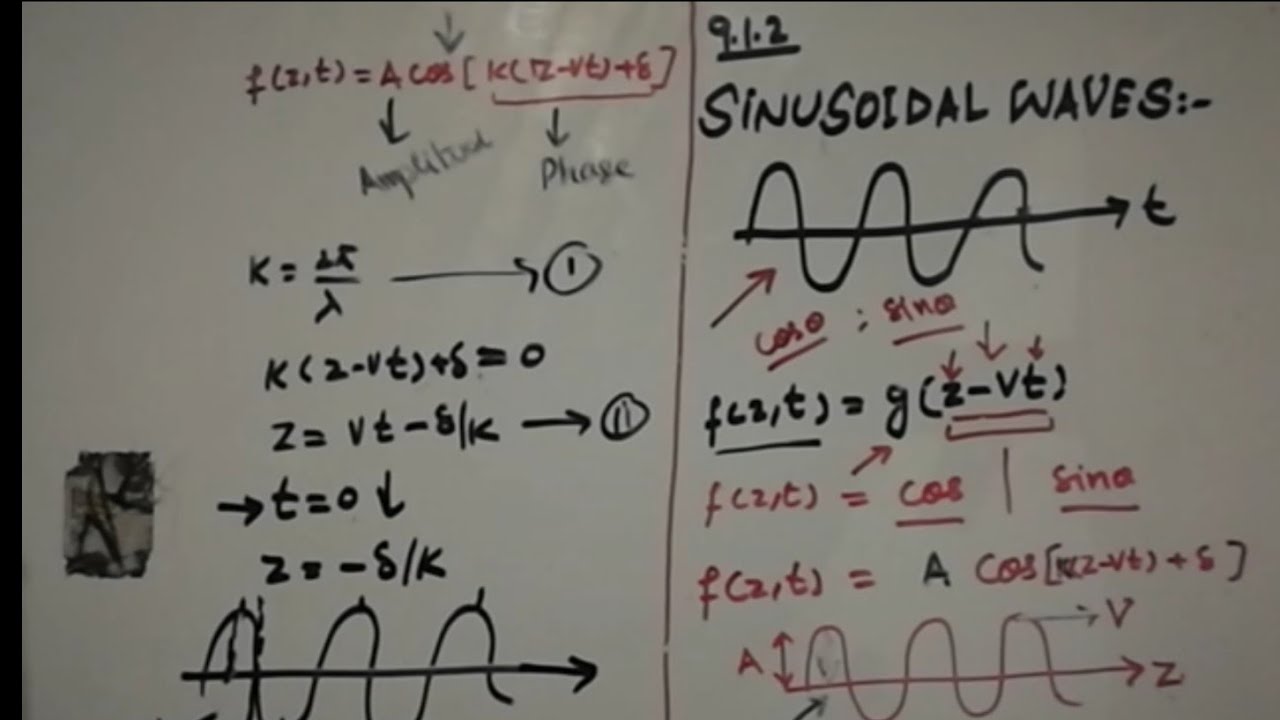 f(z,t) = A cos[k(z-vt)+δ]
Amplitud
Phase
K = 2π/λ → I
K(z-vt)+δ = 0
z = vt-δ/K → II
→ t=0 ↓
z = -δ/K
9.1.2
SINUSOIDAL WAVES:-
t
cosθ ; sinθ
f(z,t) = g(z-vt)
f(z,t) = cos | sinθ
f(z,t) = A cos[k(z-vt)+δ]
V
A
z